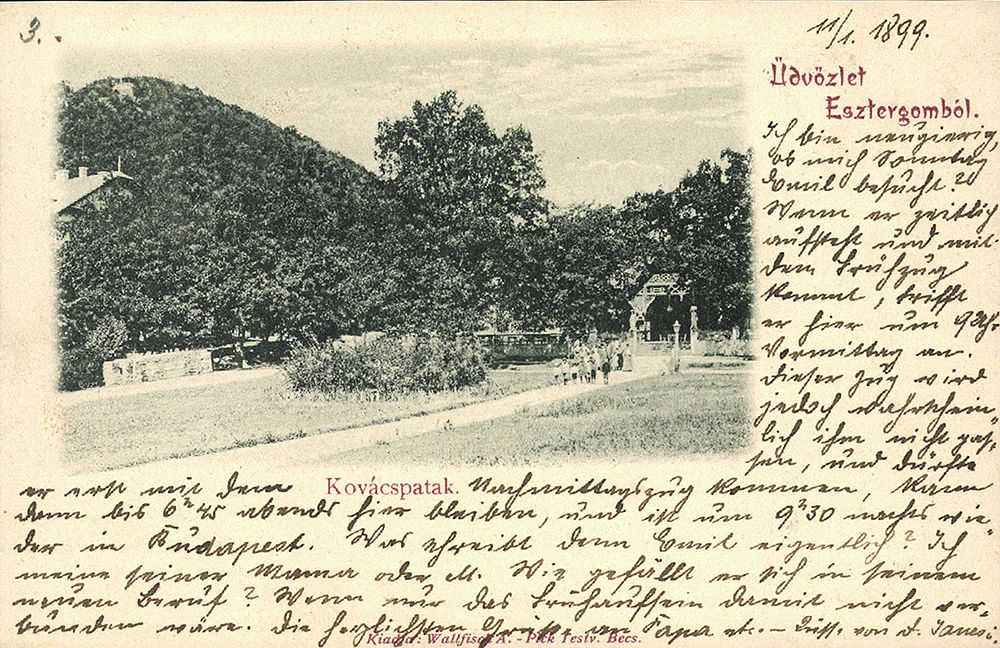 3.
11/1. 1899.
Üdvözlet
Esztergomból.
Ich bin neugierig,
ob mich Sonntag
Emil besucht?
Wenn er zeitlich
aufsteht und mit
dem Frühzug
kommt, trifft
er hier um 9 Uhr
Vormittag an.
Dieser Zug wird
jedoch wahrschein
lich ihm nicht pas-
sen, und dürfte
er erst mit dem
Kovácspatak.
Nachmittagszug kommen, kann
dann bis 6h45 abends hier bleiben, und ist um 9h30 nachts wie-
der in Budapest. Was schreibt denn Emil eigentlich? Ich
meine seiner Mama oder . Wie gefällt er sich in seinem
neuen Beruf? Wenn nur das Frühaufsein damit nicht ver-
bunden wäre. Die herzlichsten Grüße an Papa etc. – von d.
Kiadja: Wallfisch A. - Pick Testv. Becs.